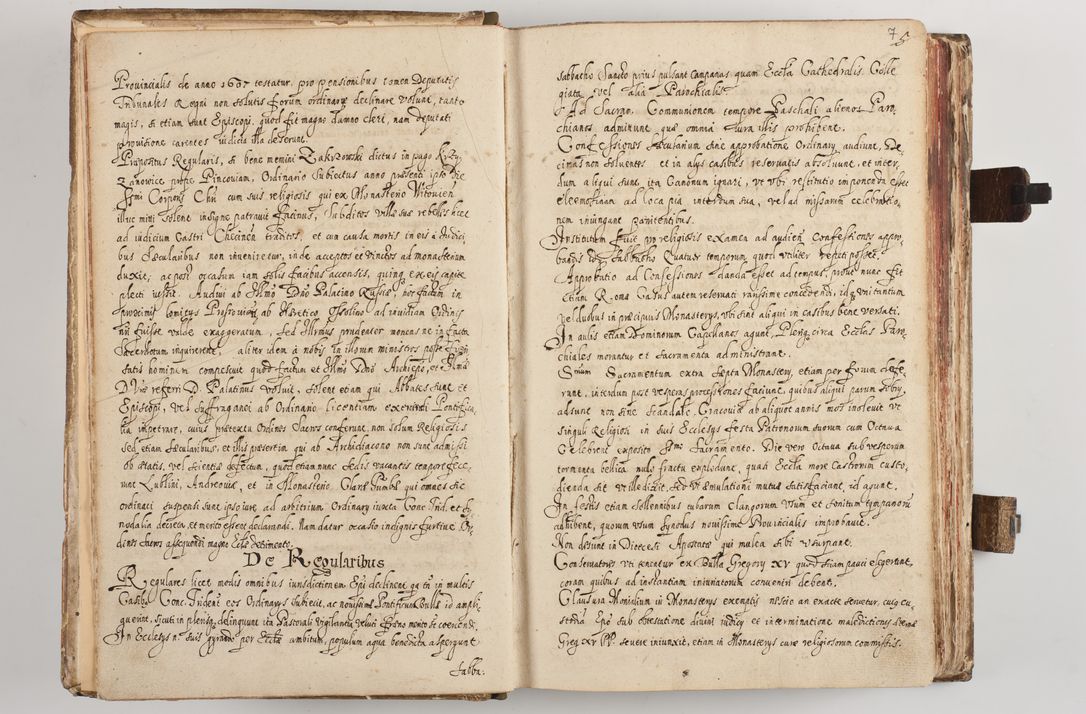 Provincialis de anno 1607 testatur. pro pensionibus tamen Deputatis
Tribunales Regni non solutis forum ordinarium declinare volunt, tanto
magis, si etiam sunt Episcopi, quod fit magno damno cleri, nam deputati
provisione carentes iudicia illa deserunt.
Praepositus Regularis, si bene memini Zakrzowski dictus in pago
prope Pincoviam, Ordinario Subiectus anno praesenti ipso die
Ssmi Corporis Chri cum suis religiosis qui ex Monasterio Witovien
illuc mitti solent insigne patravit facinus, Subditos villae suae rebelles licet
ad iudicium Castri Checinen traditos, et cum causa mortis in eis a Iudici,
bus saecularibus non invenietur, inde acceptos et vinctos ad monasterium
duxit, ac post occasum iam solis facibus accensis, quinq ex eis capite
plecti iussit. Audivi ab Illmo Dno Palatino Russiae, hoc factum in
proximis Comitijs ab Ossolino ad Ordinis
nri fuisse valde exageratum, sed Illrmus prudenter monens ne in facta
Sacerdotum inquirerent, aliter idem a nobis in illorum ministros posse
hominem compescuit quod factum et Illmo Dno Archiepo, et Illma
D. Vrae referri D. Palatinus voluit, solent etiam qui Abbates sunt et
Episcopi, vel Suffraganei ab Ordinario licentiam exercendi Pontifica,
lia impetrare, cuius praetextu Ordines Sacros conferunt, non solum Religiosis
sed etiam saecularibus, et illis praesertim qui ab Archidiacono non sunt admissi
ob aetatis, vel scientiae defectum, quod etiam nunc Sedis vacantis tempore fece,
runt Lublini, Andreoviae, et in Monasterio Clarae Tumbae qui omnes sic
ordinati suspensi sunt ipso iure ad arbitrium Ordinary iuxta Conc. Trid. et
nodalia decreta, et merito essent declarandi. Nam datur occasio indignis furtive Or,
dines sacros assequendi magno Ecclae detrimento.
De Regularibus
Regulares licet modis omnibus iurisdictionem Epi declinent, qq tn in multis
Casibus Conc. Trident eos Ordinarijs subiecit, ac novissime Pontificum Bulla id ampli,
averint, sicuti in plerisq delinquunt ita Pastorali vigilantia veluti fraeno merito se coercendi.
In Ecclesijs suis gyrando per Ecclae ambitum, populum aqua benedicta aspergunt
Sabba,
75
Sabbatho Sancto prius pulsant Campanas, quam Eccla Cathedralis Colle
giata, vel alia Parochialis.
Ad Sacram Communionem tempore Paschali alienos Paro,
chianos admittunt quae omnia Iura illis prohibent.
Confessiones saecularium sine approbatione Ordinary audiunt, De,
cimas non solventes et in alijs casibus reservatis absolvunt, et inter
dum aliqui sunt ita Canonum ignari, ut ubi restitutio imponenda esset
eleemosinam ad loca pia, interdum sua, vel ad missarum celebratio,
nem iniungant poenitentibus.
Institutum fuit pro religiosis examen ad audien Confessiones appro,
bandis Sabbatho Quatuor temporum, quod utiliter repeti posset.
Approbatio ad Confessiones danda esset ad tempus, prout nunc fit
etiam Romae Casus autem reservati rarissime concedendi, idq unitantum
vel duobus in praecipuis Monasterijs, ubi sint aliqui in casibus bene versati.
In aulis etiam Dominorum Capellanos agunt, Pleriq circa Ecclas Paro,
chiales morantur et sacramenta administrant.
Ssmum Sacramentum extra septa Monasterij, etiam per forum defe,
runt, interdum post vesperas processiones faciunt, quibus aliqui parum sobrij
adsunt non sine scandalo. Cracoviae ab aliquot annis mos inolevit ut
singuli Religiosi in suis Ecclesijs festa Patronorum suorum cum Octava
Celebrent exposito Ssmo Sacramento. Die vero Octava sub vesperum
tormenta bellica nullo fructu explodunt, quasi Eccla more Castrorum custo,
dienda sit ut illi dicunt, sed ut aemulationi mutuae satisfaciant id agunt.
In festis etiam sollennibus tubarum clangorum usum et sonitum tympanorum
adhibent, quorum usum Synodus novissime Provincialis improbavit.
Non desunt in Dioecesi Apostatae qui multa sibi usurpant.
Conservatores uti tenentur ex Bulla Gregory XV quod etiam pauci elegerunt,
coram quibus ad instantiam iniuriatorum conveniri debent.
Clausura Monialium in Monasterijs exemptis nescio an exacte servetur, cuius cu,
stodia Epo sub obtestatione divini iudicij et interminatione maledictionis aeternae
Greg. XV PP. severe iniunxit, etiam in Monasterijs curae religiosorum commissis.